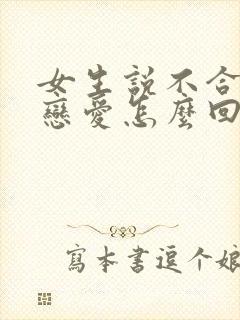 女生説不合
戀愛怎麼回
寫本書逗个娘